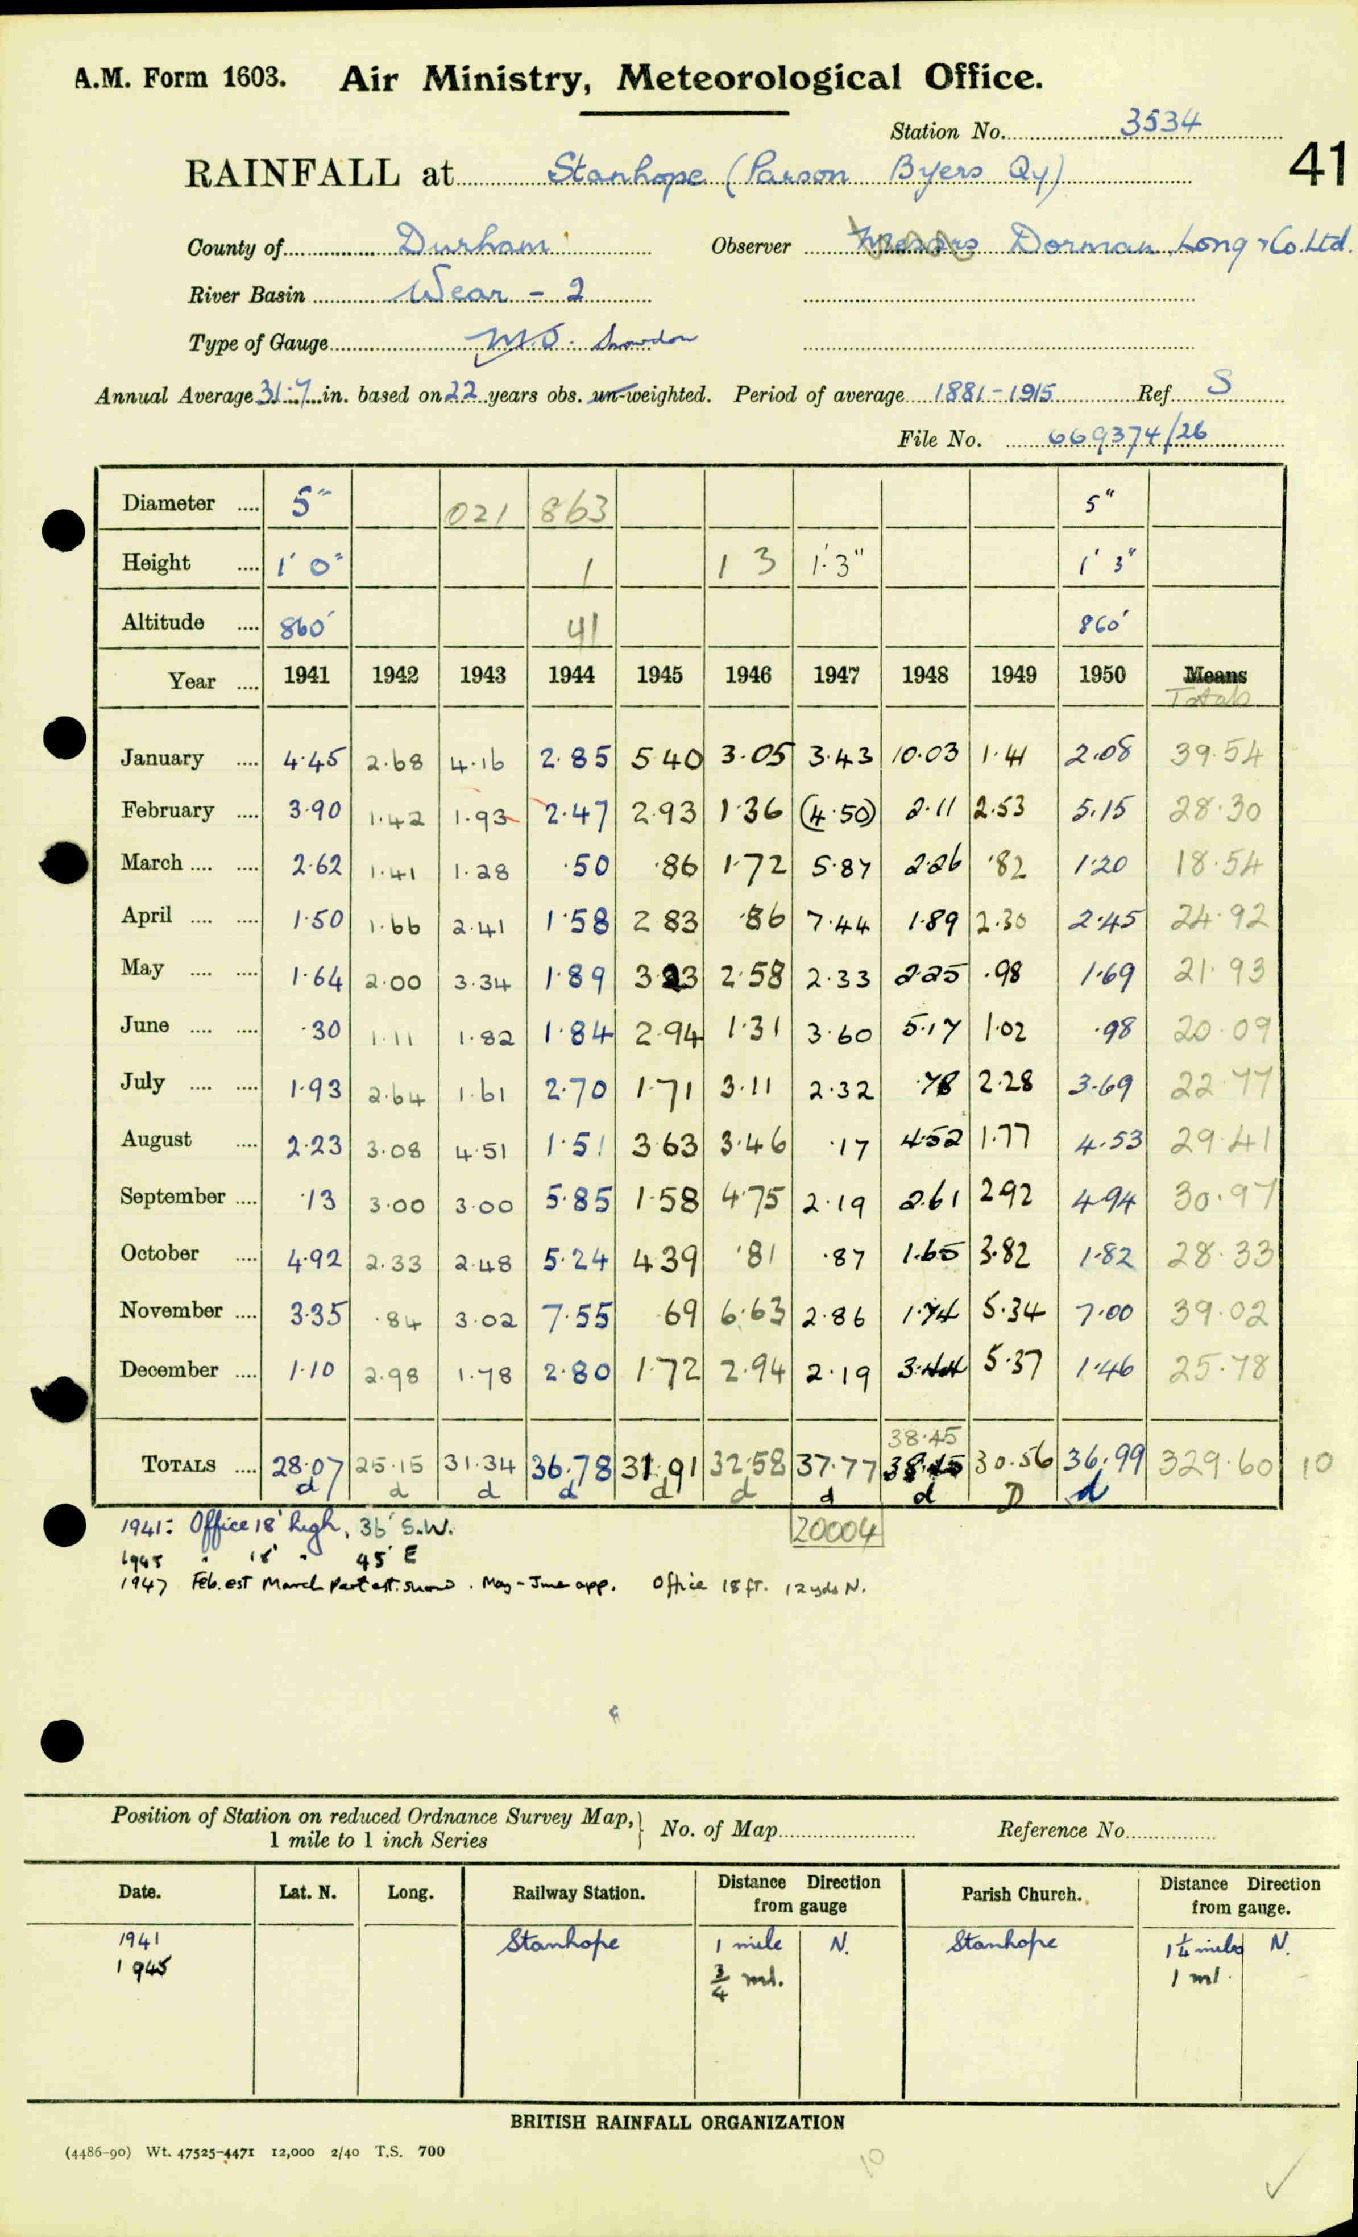 A.M. Form 1603. Air Ministry, Meteorological Office.
Station No. 3534
41
RAINFALL at Stanhope (Parson Byers Qy)
County of Durham Observer Messrs Dorman Long & Co. Ltd.
River Basin Wear - 2
Type of Gauge M.O. Snowdon
Annual Average 31.7 in. based on 22 years obs. un-weighted. Period of average 1881-1915 Ref. S
File No. 669374/26
Diameter .... 5" 021 863 5"
Height .... 1' 0" 1 1 3 1' 3" 1' 3"
Altitude .... 860' 41 860'
Year .... 1941 1942 1943 1944 1945 1946 1947 1948 1949 1950 Means
Totals
January .... 4.45 2.68 4.16 2.85 5 40 3.05 3.43 10.03 1.41 2.08 39.54
February .... 3.90 1.42 1.93 2.47 2.93 1.36 (4.50) 2.11 2.53 5.15 28.30
March .... .... 2.62 1.41 1.28 .50 .86 1.72 5.87 2.26 .82 1.20 18.54
April .... .... 1.50 1.66 2.41 1.58 2 83 .86 7.44 1.89 2.30 2.45 24.92
May .... .... 1.64 2.00 3.34 1.89 3.23 2.58 2.33 2.25 .98 1.69 21.93
June .... .... .30 1.11 1.82 1.84 2.94 1.31 3.60 5.17 1.02 .98 20.09
July .... .... 1.93 2.64 1.61 2.70 1.71 3.11 2.32 .78 2.28 3.69 22.77
August .... 2.23 3.08 4.51 1.51 3.63 3.46 .17 4.52 1.77 4.53 29.41
September .... .13 3.00 3.00 5.85 1.58 4.75 2.19 2.61 2.92 4.94 30.97
October .... 4.92 2.33 2.48 5.24 4.39 .81 .87 1.65 3.82 1.82 28.33
November .... 3.35 .84 3.02 7.55 .69 6.63 2.86 1.74 5.34 7.00 39.02
December .... 1.10 2.98 1.78 2.80 1.72 2.94 2.19 3.44 5.37 1.46 25.78
38.45
TOTALS .... 28.07 25.15 31.34 36.78 31.91 32.58 37.77 38.45 30.56 36.99 329.60 10
d d d d d d d d D d
1941: Office 18' high, 36' S.W. 20004
1945 " 18' " 45' E
1947 Feb. est March Part est. snow. May-June app. Office 18 ft. 12 yds N.
Position of Station on reduced Ordnance Survey Map,} No. of Map Reference No.
1 mile to 1 inch Series
Date. Lat. N. Long. Railway Station. Distance from gauge Direction Parish Church. Distance from gauge. Direction
1941 Stanhope 1 mile N. Stanhope 1¼ miles N.
1945 ¾ ml. 1 ml.
BRITISH RAINFALL ORGANIZATION
(4486-90) Wt. 47525-4471 12,000 2/40 T.S. 700
10